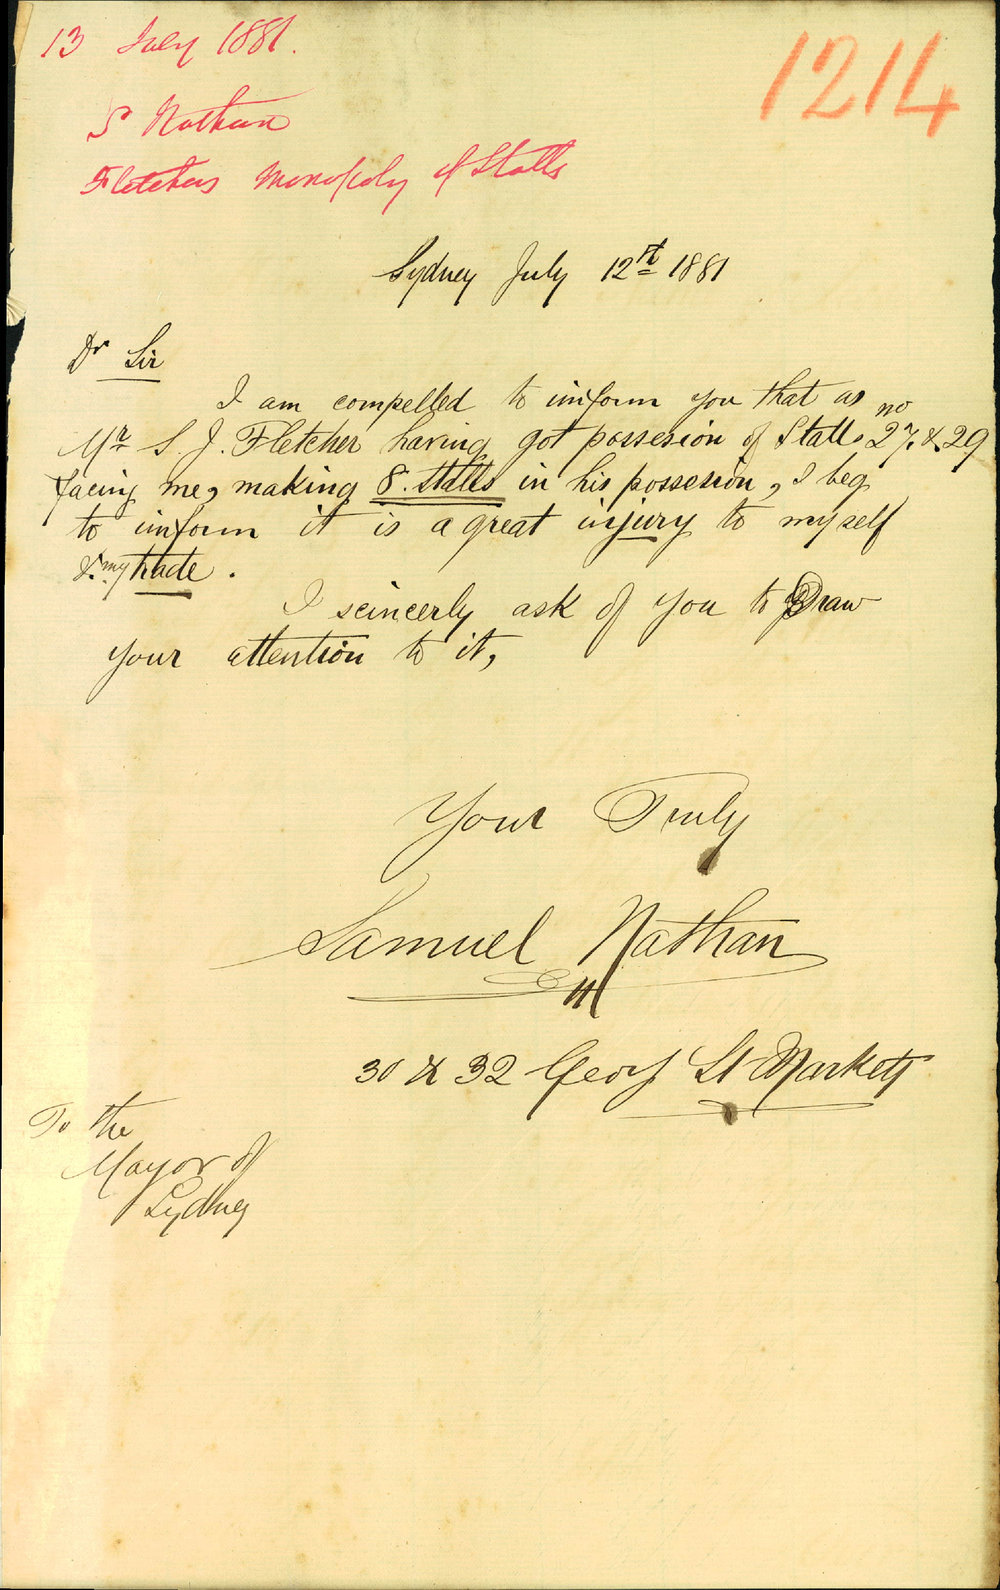 13 July 1881.
1214
S Nathan
Fletchers Monopoly of Stalls
Sydney July 12th 1881
Dr Sir
I am compelled to uinform you that as
Mr S. J. Fletcher having got possesion of Stalls no 27. & 29
facing me, making 8. Stalls in his possesion, I beg
to uinform it is a great injury to myself
&. my trade.
I scincerly ask of you to Draw
your attention to it,
Your Truly
Samuel Nathan
30 & 32 Geo St Markets
To the
Mayor of
Sydney